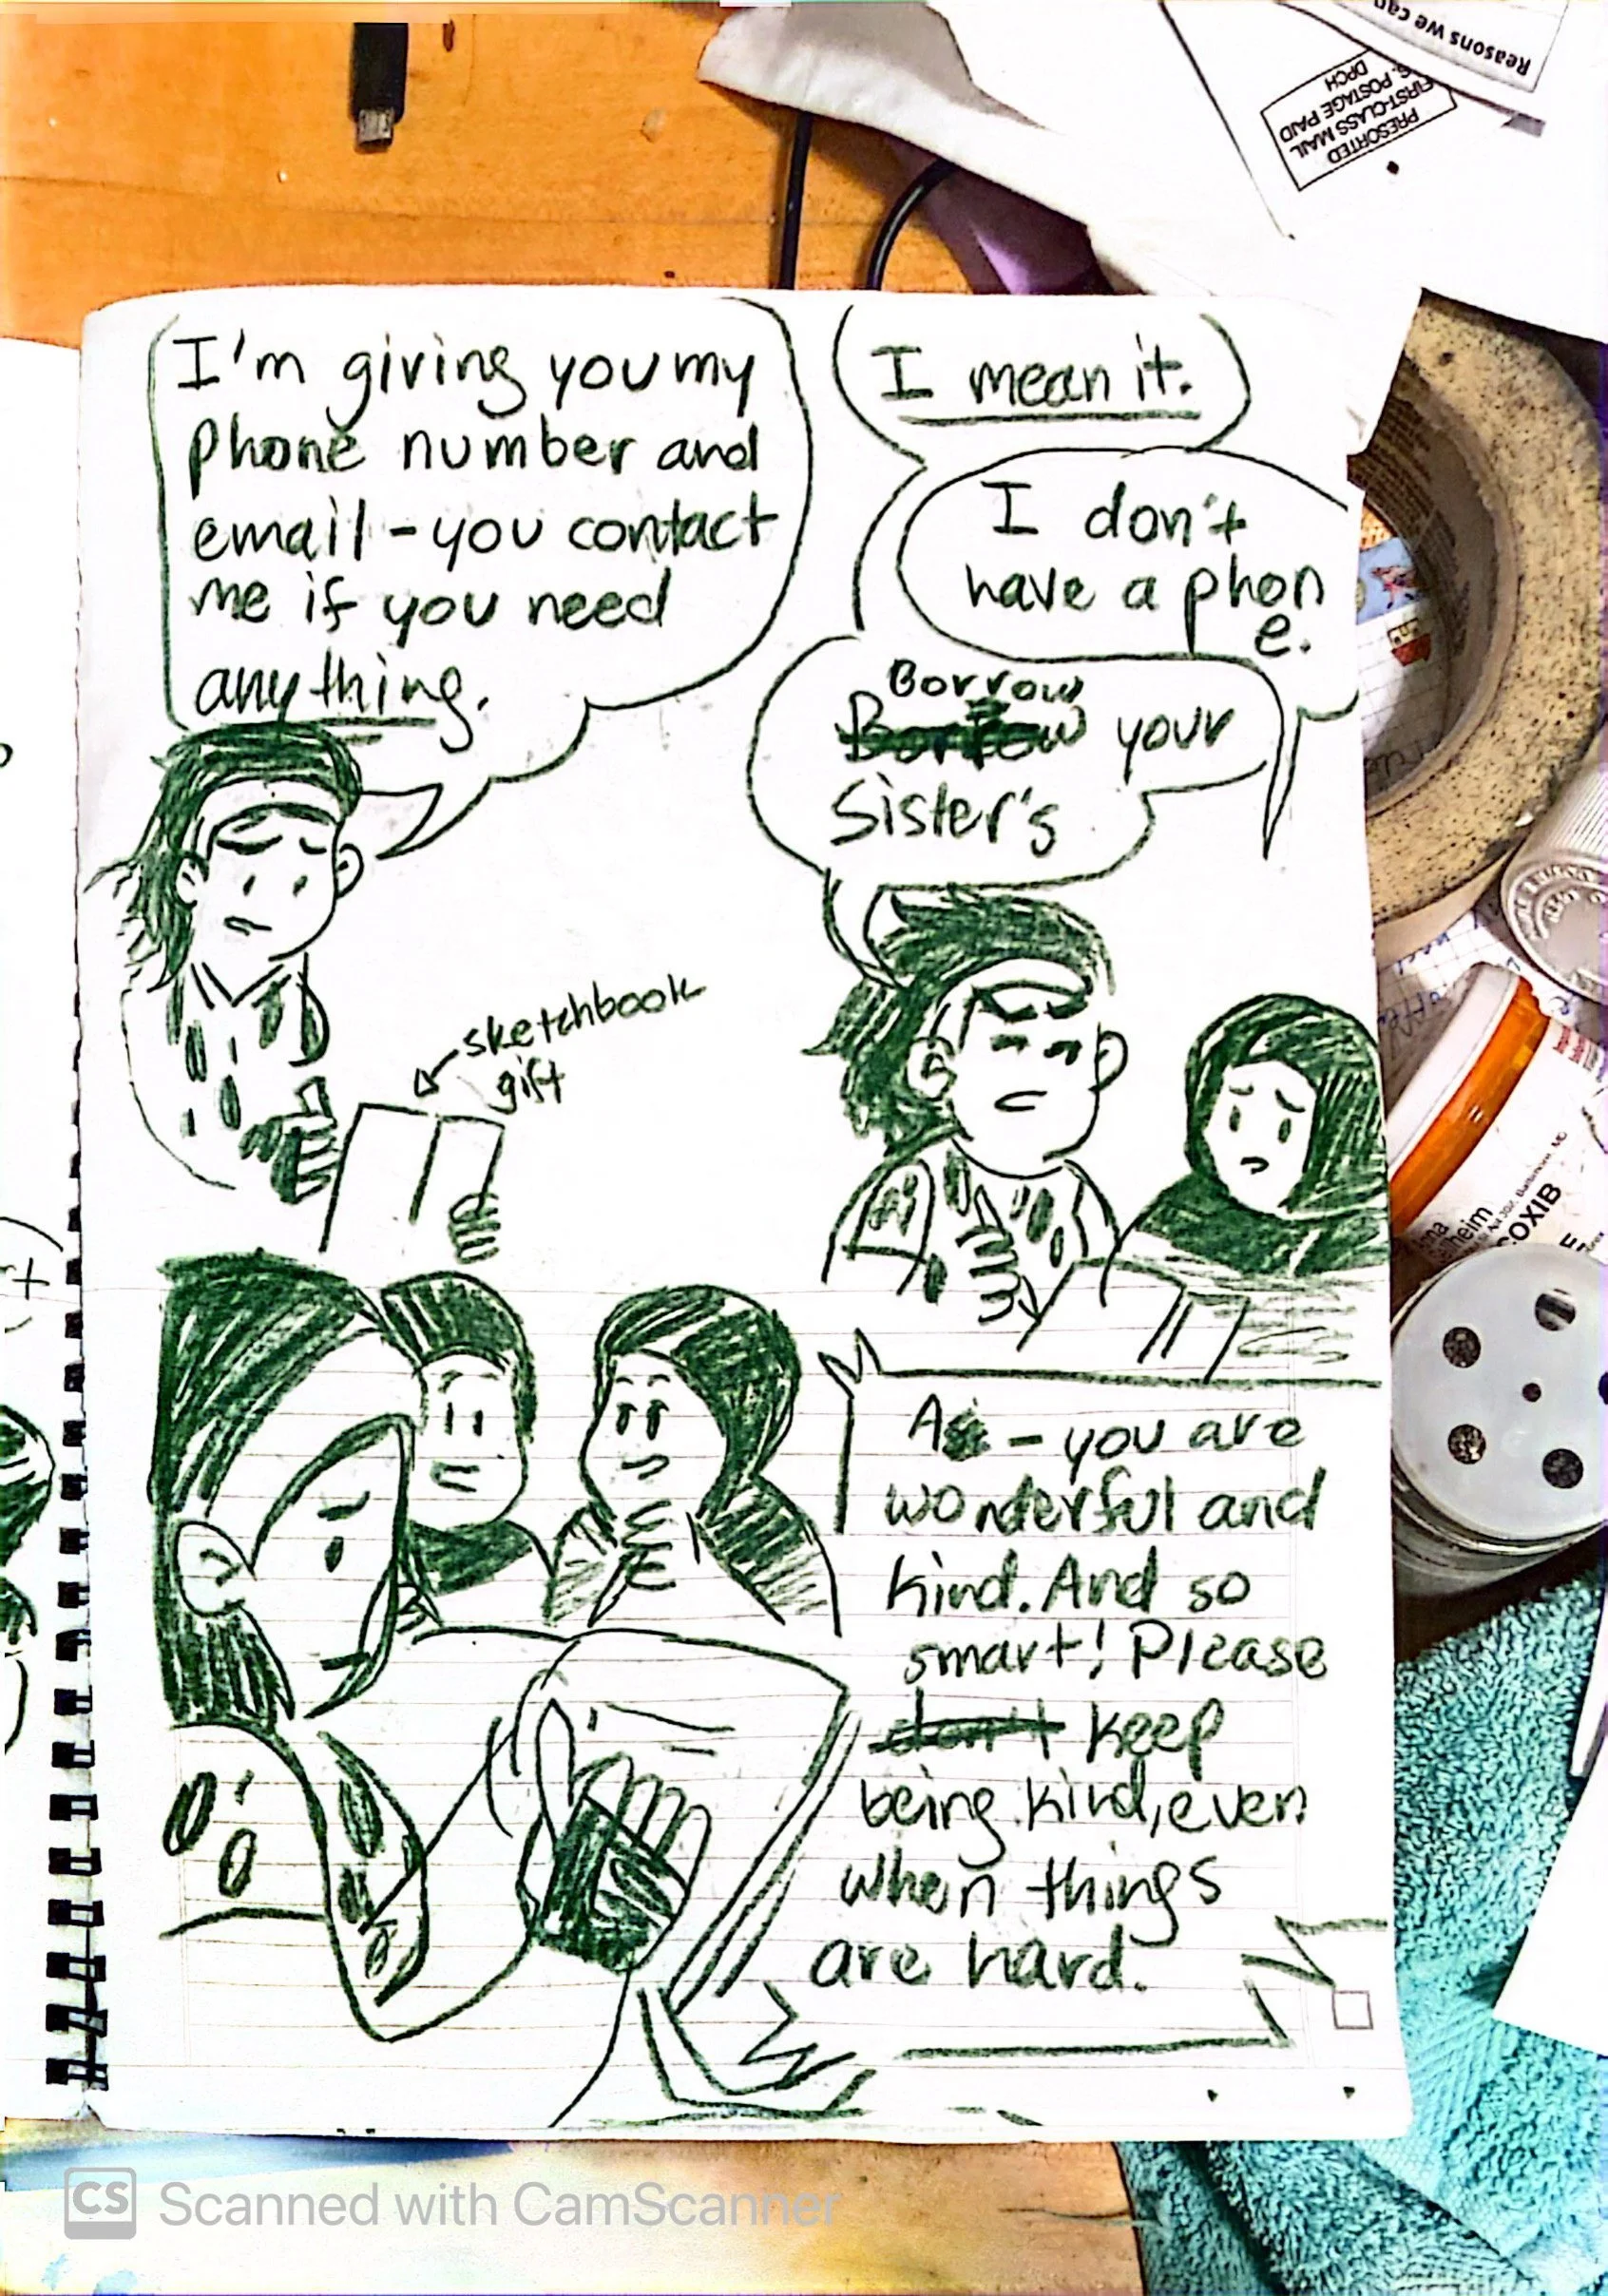 Reasons we can
PRESORTED
FIRST-CLASS MAIL
POSTAGE PAID
DPCH
I'm giving you my
phone number and
email - you contact
me if you need
anything.
I mean it.
I don't
have a phon
e.
Borrow
your
Sister's
sketchbook
gift
As - you are
wonderful and
kind. And so
smart! Please
don't keep
being kind, even
when things
are hard.
heim
COXIB
CS Scanned with CamScanner